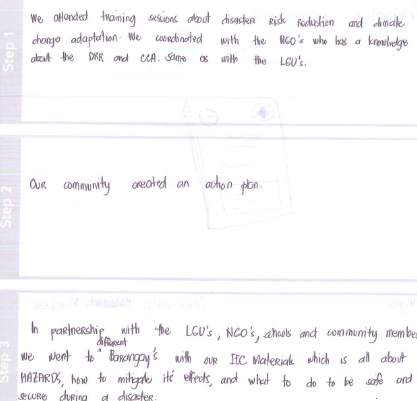 Step 1
We attended training sessions about disaster risk reduction and climate
change adaptation. We coordinated with the NGO's who has a knowledge
about the DRR and CCA. Same as with the LGU's.
Step 2
Our community created an action plan.
Step 3
In partnership with the LGU's, NGO's, schools and community member
we went to different Barangay's with our IEC Materials which is all about
HAZARDS, how to mitigate its' effects, and what to do to be safe and
secure during a disaster.